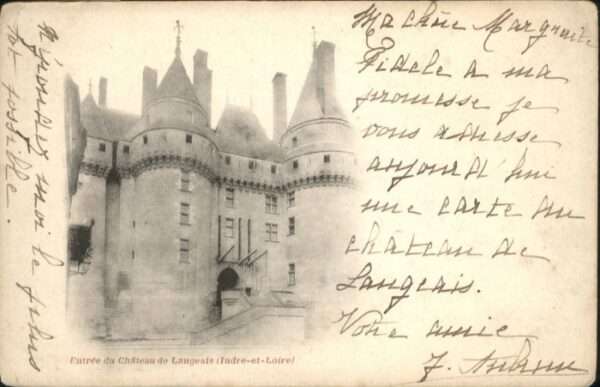 Ma chère Marguerite
Fidèle à ma
promesse je
vous adresse
aujourd'hui
une carte du
château de
Langeais.
Votre amie
Répondez moi le plus
tot possible.
Entrée du Château de Langeais (Indre-et-Loire)